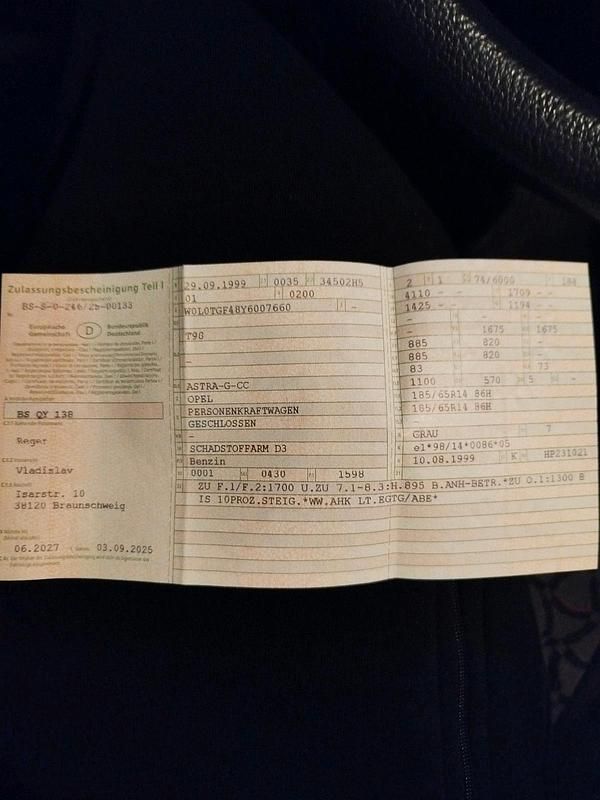 Zulassungsbescheinigung Teil I
BS-S-0-246/25-00133
Europäische Gemeinschaft
D
Bundesrepublik Deutschland
BS QY 138
Reger
Vladislav
Isarstr. 10
38120 Braunschweig
06.2027
03.09.2025
29.09.1999 0035 34502H5
01 0200
W0L0TGF48Y6007660 -
-
T98
-
ASTRA-G-CC
OPEL
PERSONENKRAFTWAGEN
GESCHLOSSEN
-
SCHADSTOFFARM D3
Benzin
0001 0430 1598
2 1 74/6000 184
4110 - - 1709 - -
1425 - - 1194 - -
- 1675 1675
885 820 -
885 820 -
83 - 73
1100 570 5 -
185/65R14 86H
185/65R14 86H
-
GRAU 7
e1*98/14*0086*05
10.08.1999 K HP231021
ZU F.1/F.2:1700 U.ZU 7.1-8.3:H.895 B.ANH-BETR.*ZU O.1:1300 B
IS 10PROZ.STEIG.*WW.AHK LT.EGTG/ABE*